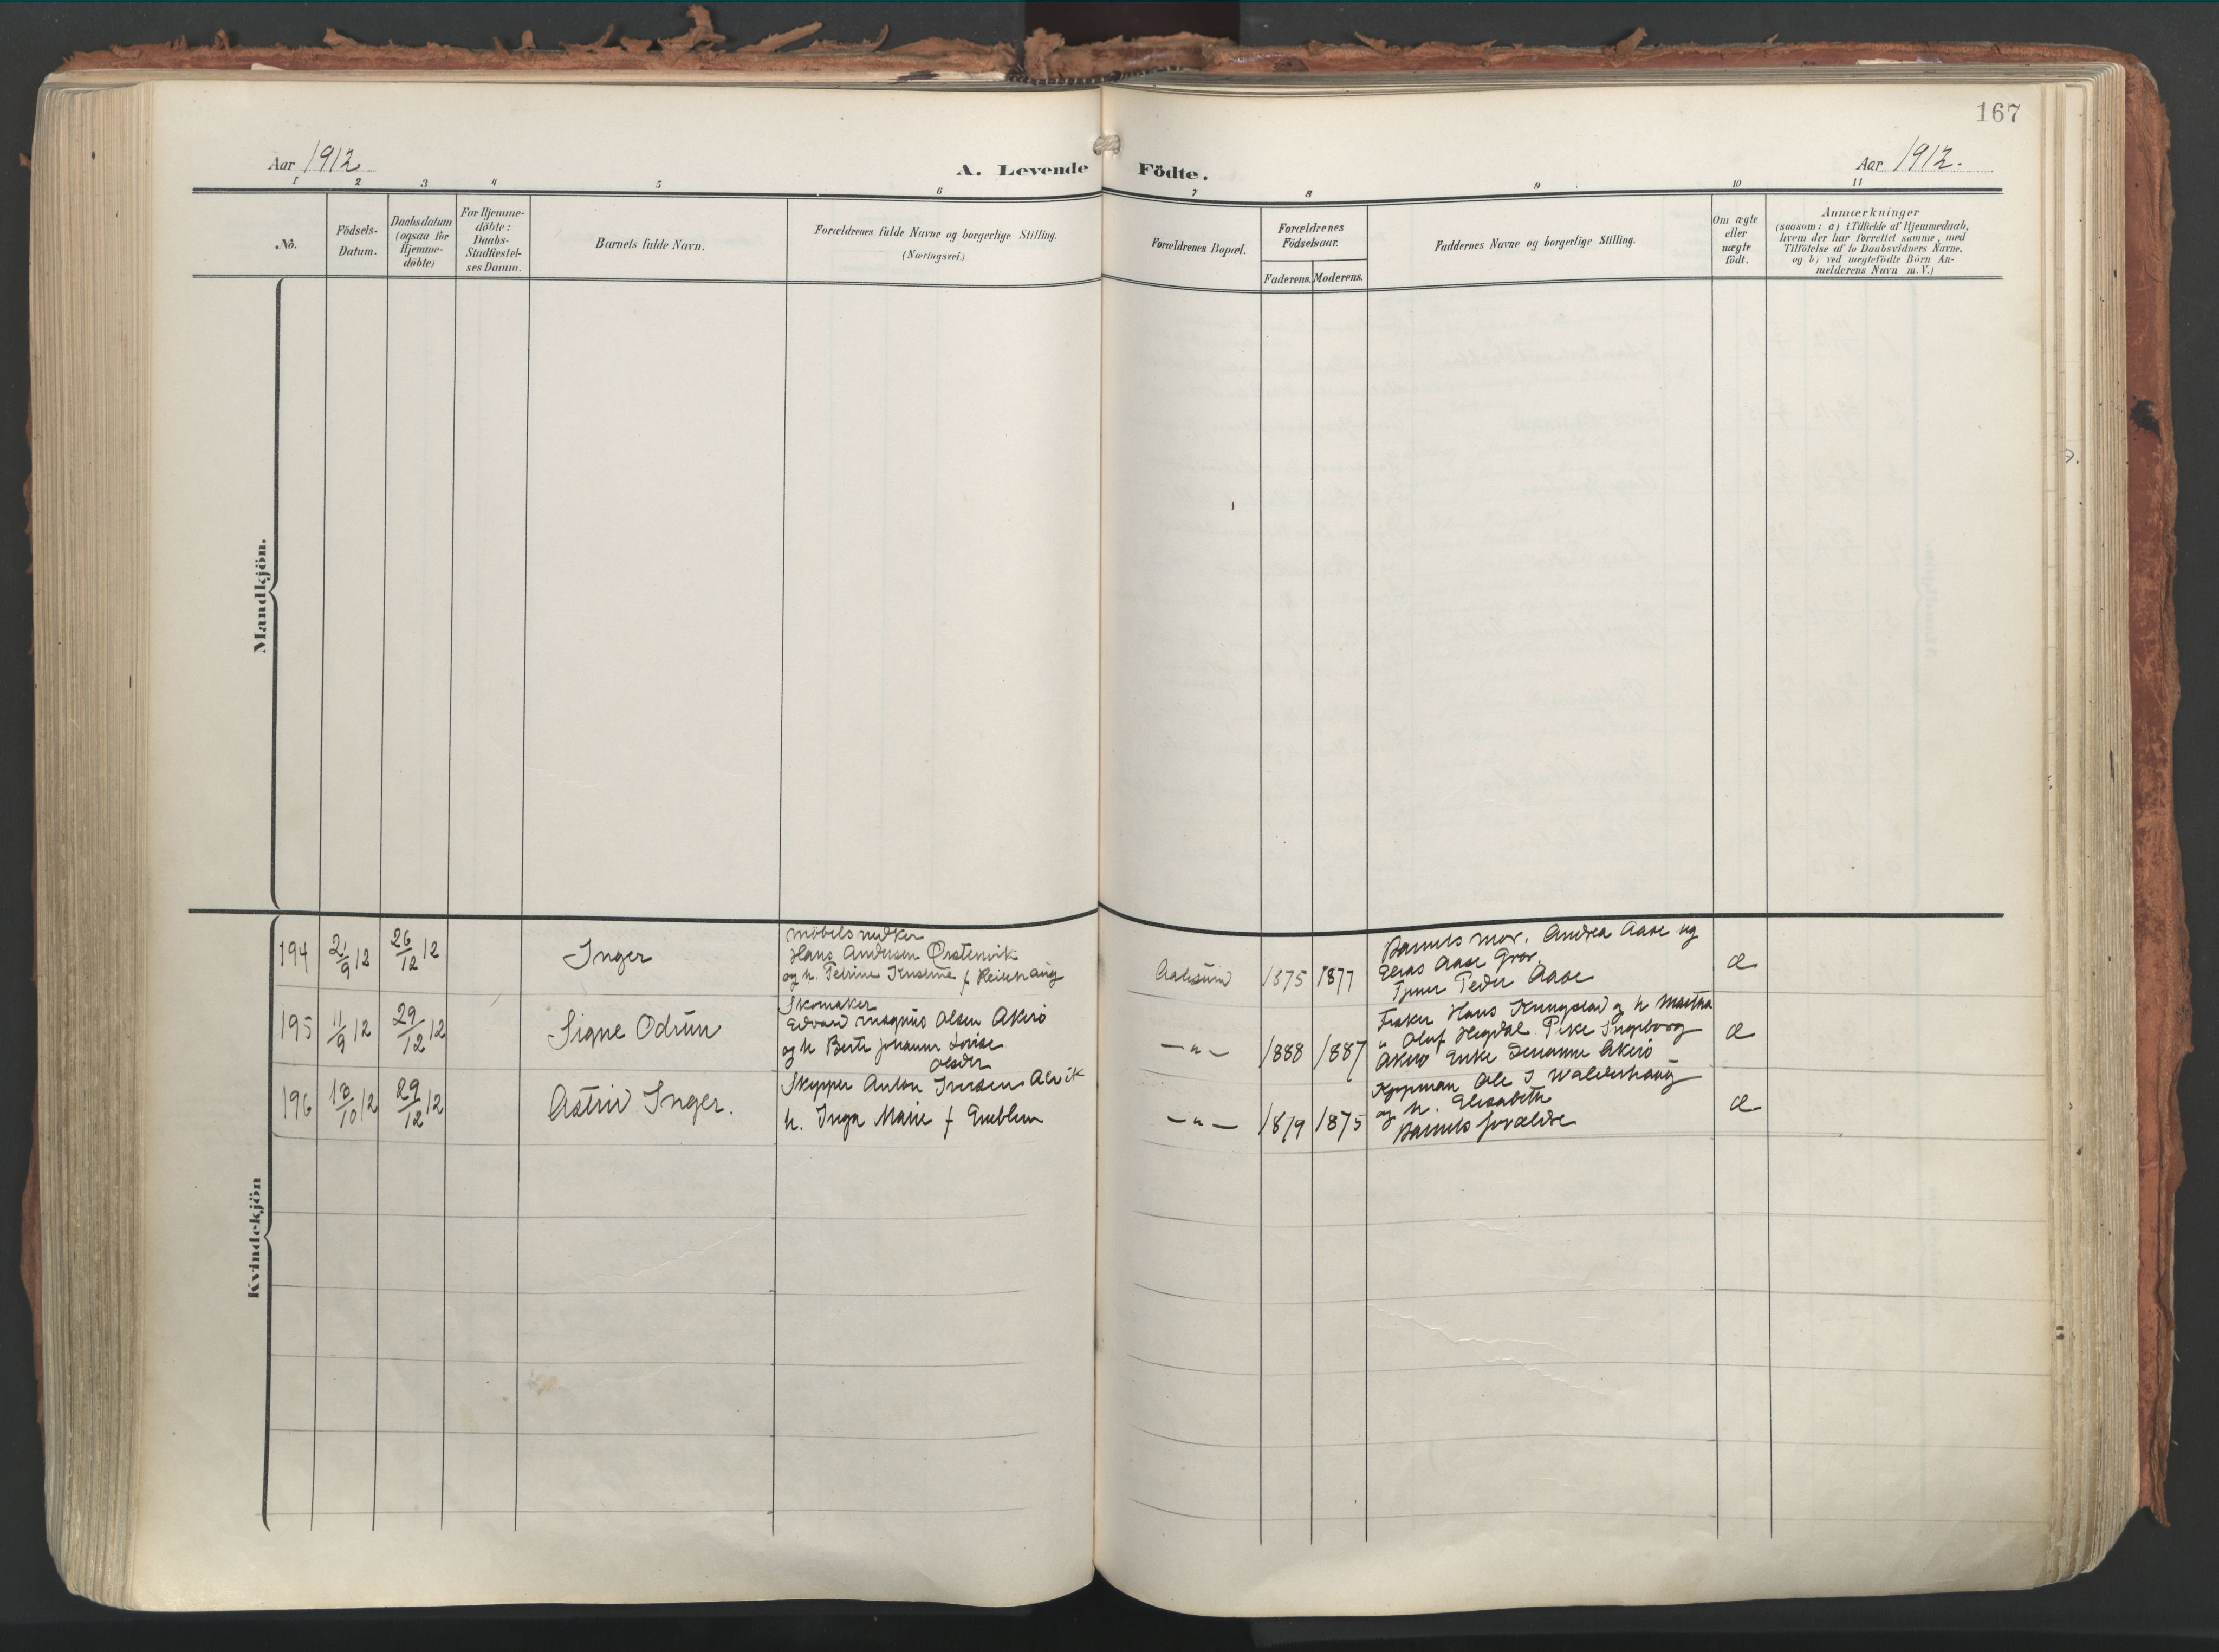 167
Aar 1912
A. Levende Födte.
Aar 1912.
1 2 3 4 5 6 7 8 9 10 11
No.
Födsels-
Datum.
Daabsdatum
(ogsaa for
Hjemme-
döbte)
For Hjemme-
döbte:
Daabs-
Stadfæstel-
ses Datum.
Barnets fulde Navn.
Forældrenes fulde Navne og borgerlige Stilling.
(Næringsvei.)
Forældrenes Bopæl.
Forældrenes
Födselsaar.
Faderens. Moderens.
Faddernes Navne og borgerlige Stilling.
Om ægte
eller
uægte
födt.
Anmærkninger
(saasom: a) i Tilfælde af Hjemmedaab,
hvem der har forrettet samme, med
Tilföielse af to Daabsvidners Navne,
og b) ved uægtefödte Börn An-
melderens Navn m. V.)
Mandkjön.
Kvindekjön
194 21/9 12 26/12 12 Inger
möbelsnedker
Hans Andersen Örstenvik
og h. Petrine Kristine f
Aalesund 1875 1877
Barnets mor. Andrea Aase og
Elias Aase Gror.
Tjener Peder Aase
æ
195 11/9 12 29/12 12 Signe Odrun
Skomaker
Edvard Magnus Olsen Akerö
og h Berte Johanne Lovise
— " — 1888 1887
Fisker Hans Kongslad og h Martha
" Oluf Hegdal Pike Ingeborg
Akerö Enke Akerö
æ
196 18/10 12 29/12 12 Astrid Inger.
Skipper Anton Iversen Alvik
h. Inga Marie f Emblem
— " — 1879 1875
Kjøpman Ole I Walderhaug
og h. Elisabeth
Barnets forældre
æ